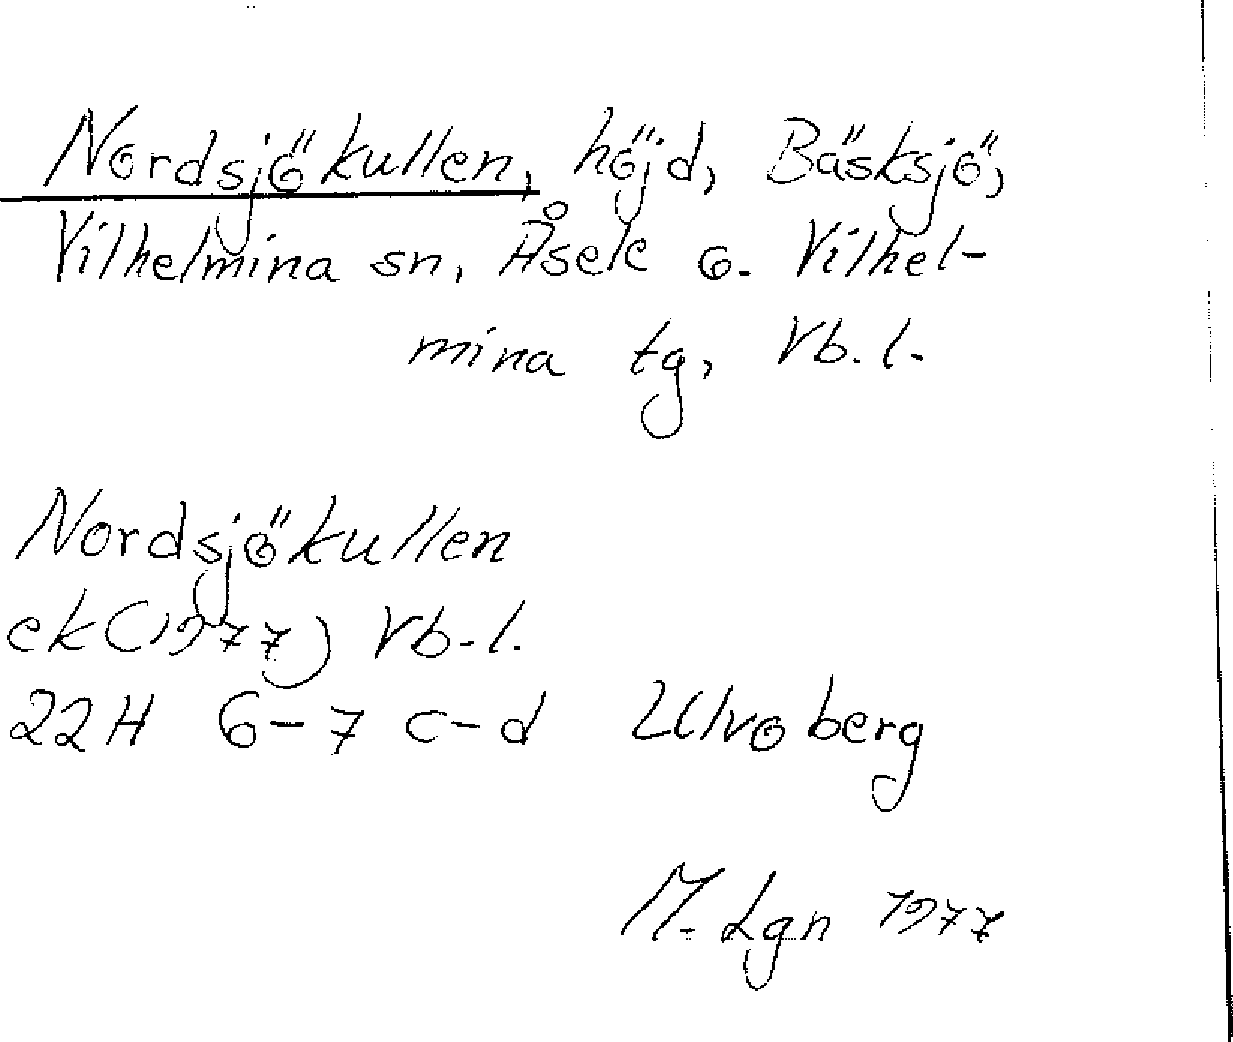 Nordsjökullen, höjd, Bäsksjö,
Vilhelmina sn, Åsele o. Vilhel-
mina tg, Vb. l.
Nordsjökullen
ek (1977) Vb. l.
22H 6-7 c-d Ulvoberg
M. Lgn 1977